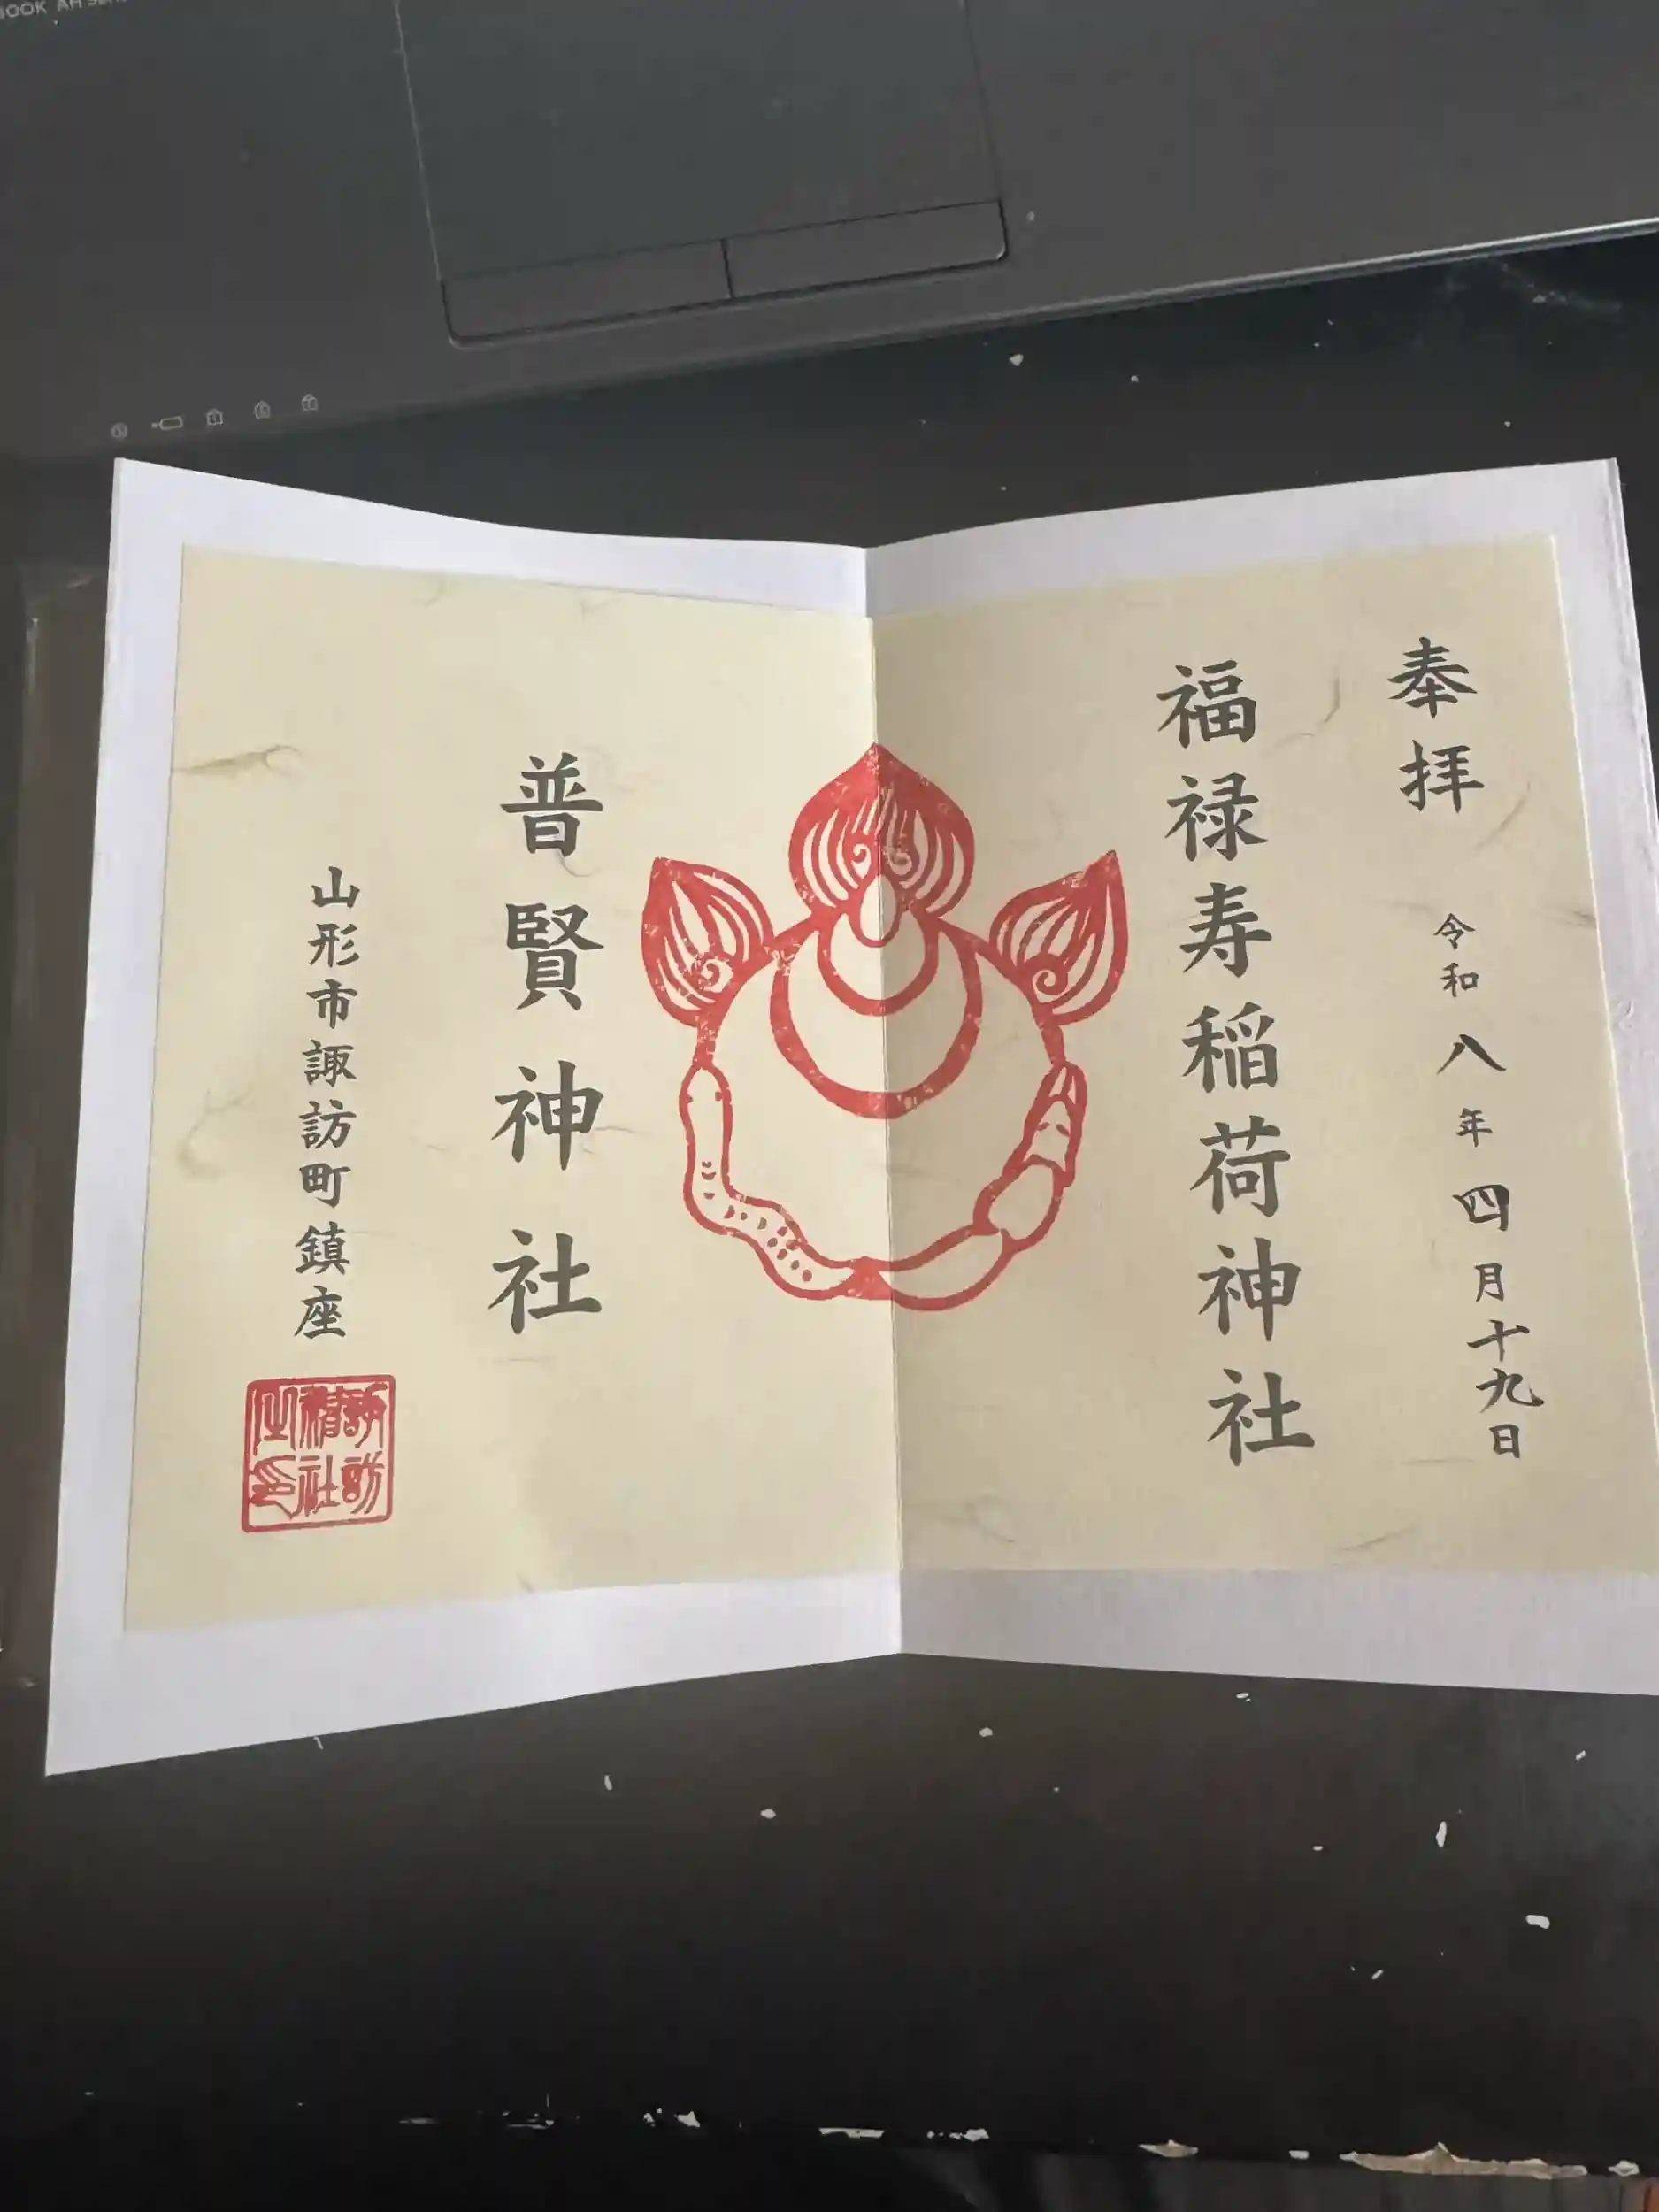 奉拝
令和八年四月十九日
福禄寿稲荷神社
普賢神社
山形市諏訪町鎮座
諏訪
神社
之印